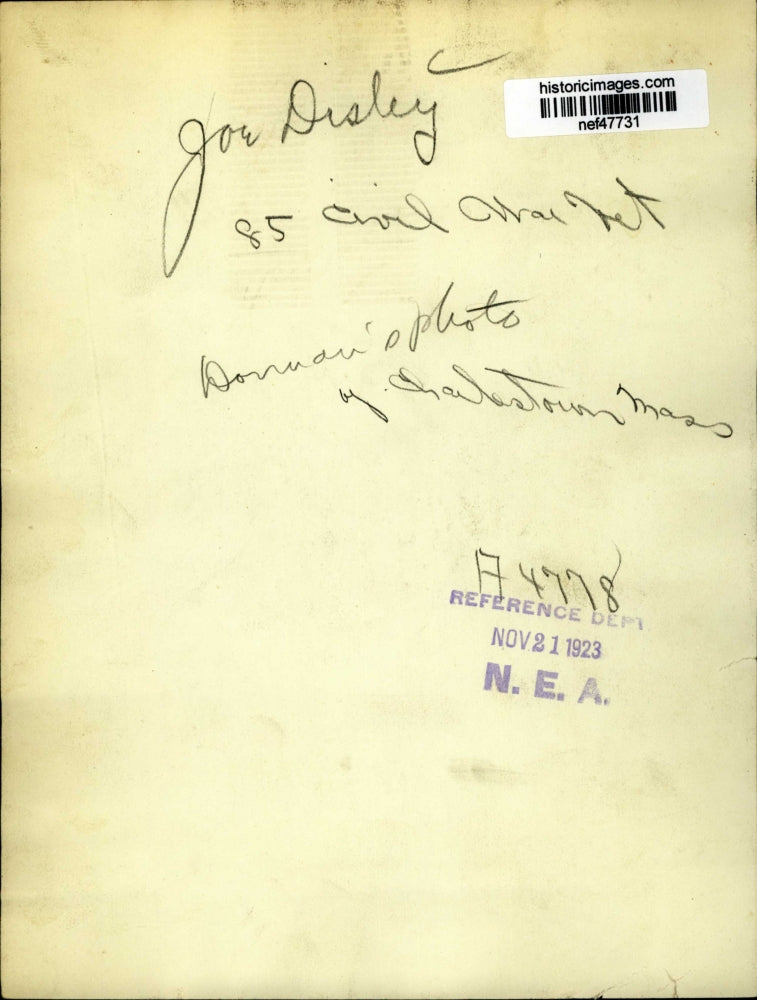 Joe Disley
historicimages.com
nef47731
85 Civil War Vet
Dorman's photo
of Charlestown Mass
A4778
REFERENCE DEPT
NOV 21 1923
N. E. A.